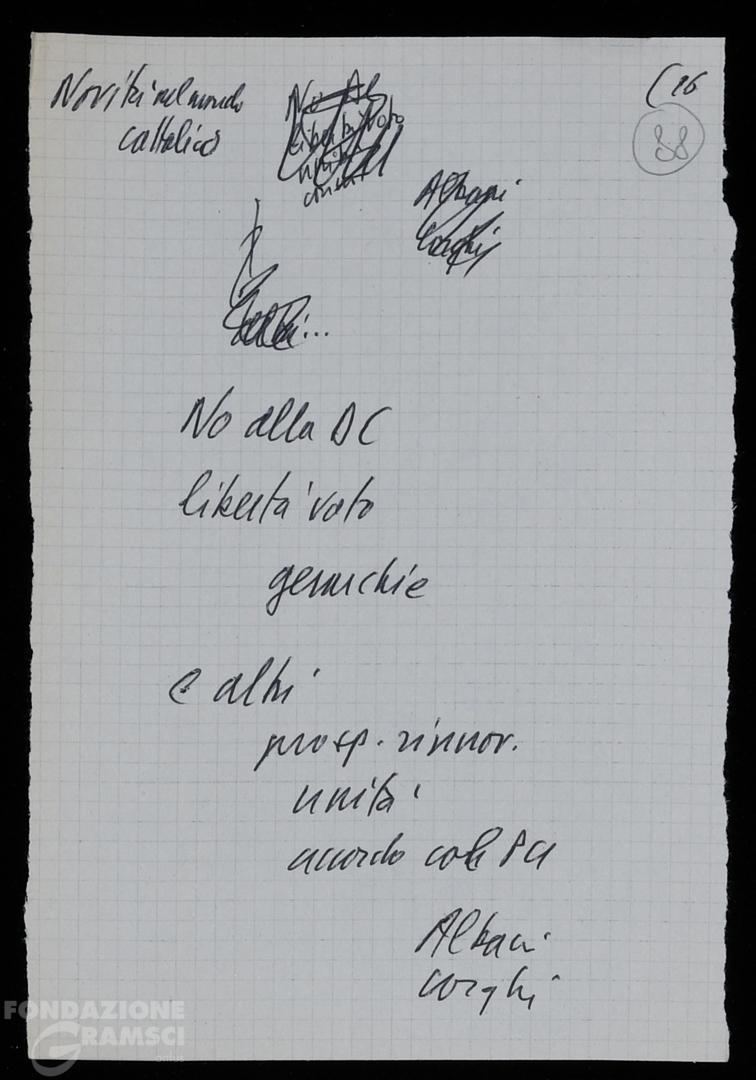 Novità nel mondo
cattolico
No Al
libertà voto
unità
(16
88
Albani
Corghi
No alla DC
libertà voto
gerarchie
e altri
prosp. rinnov.
unità
accordo col PCI
Albani
Corghi
FONDAZIONE
GRAMSCI
onlus